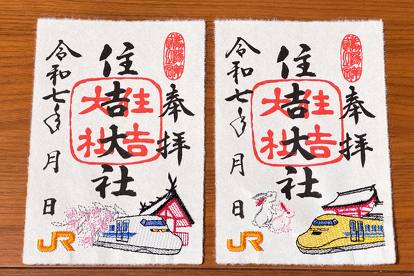 奉拝
住吉大社
住吉大社
令和七年 月 日
JR
奉拝
住吉大社
住吉大社
令和七年 月 日
JR